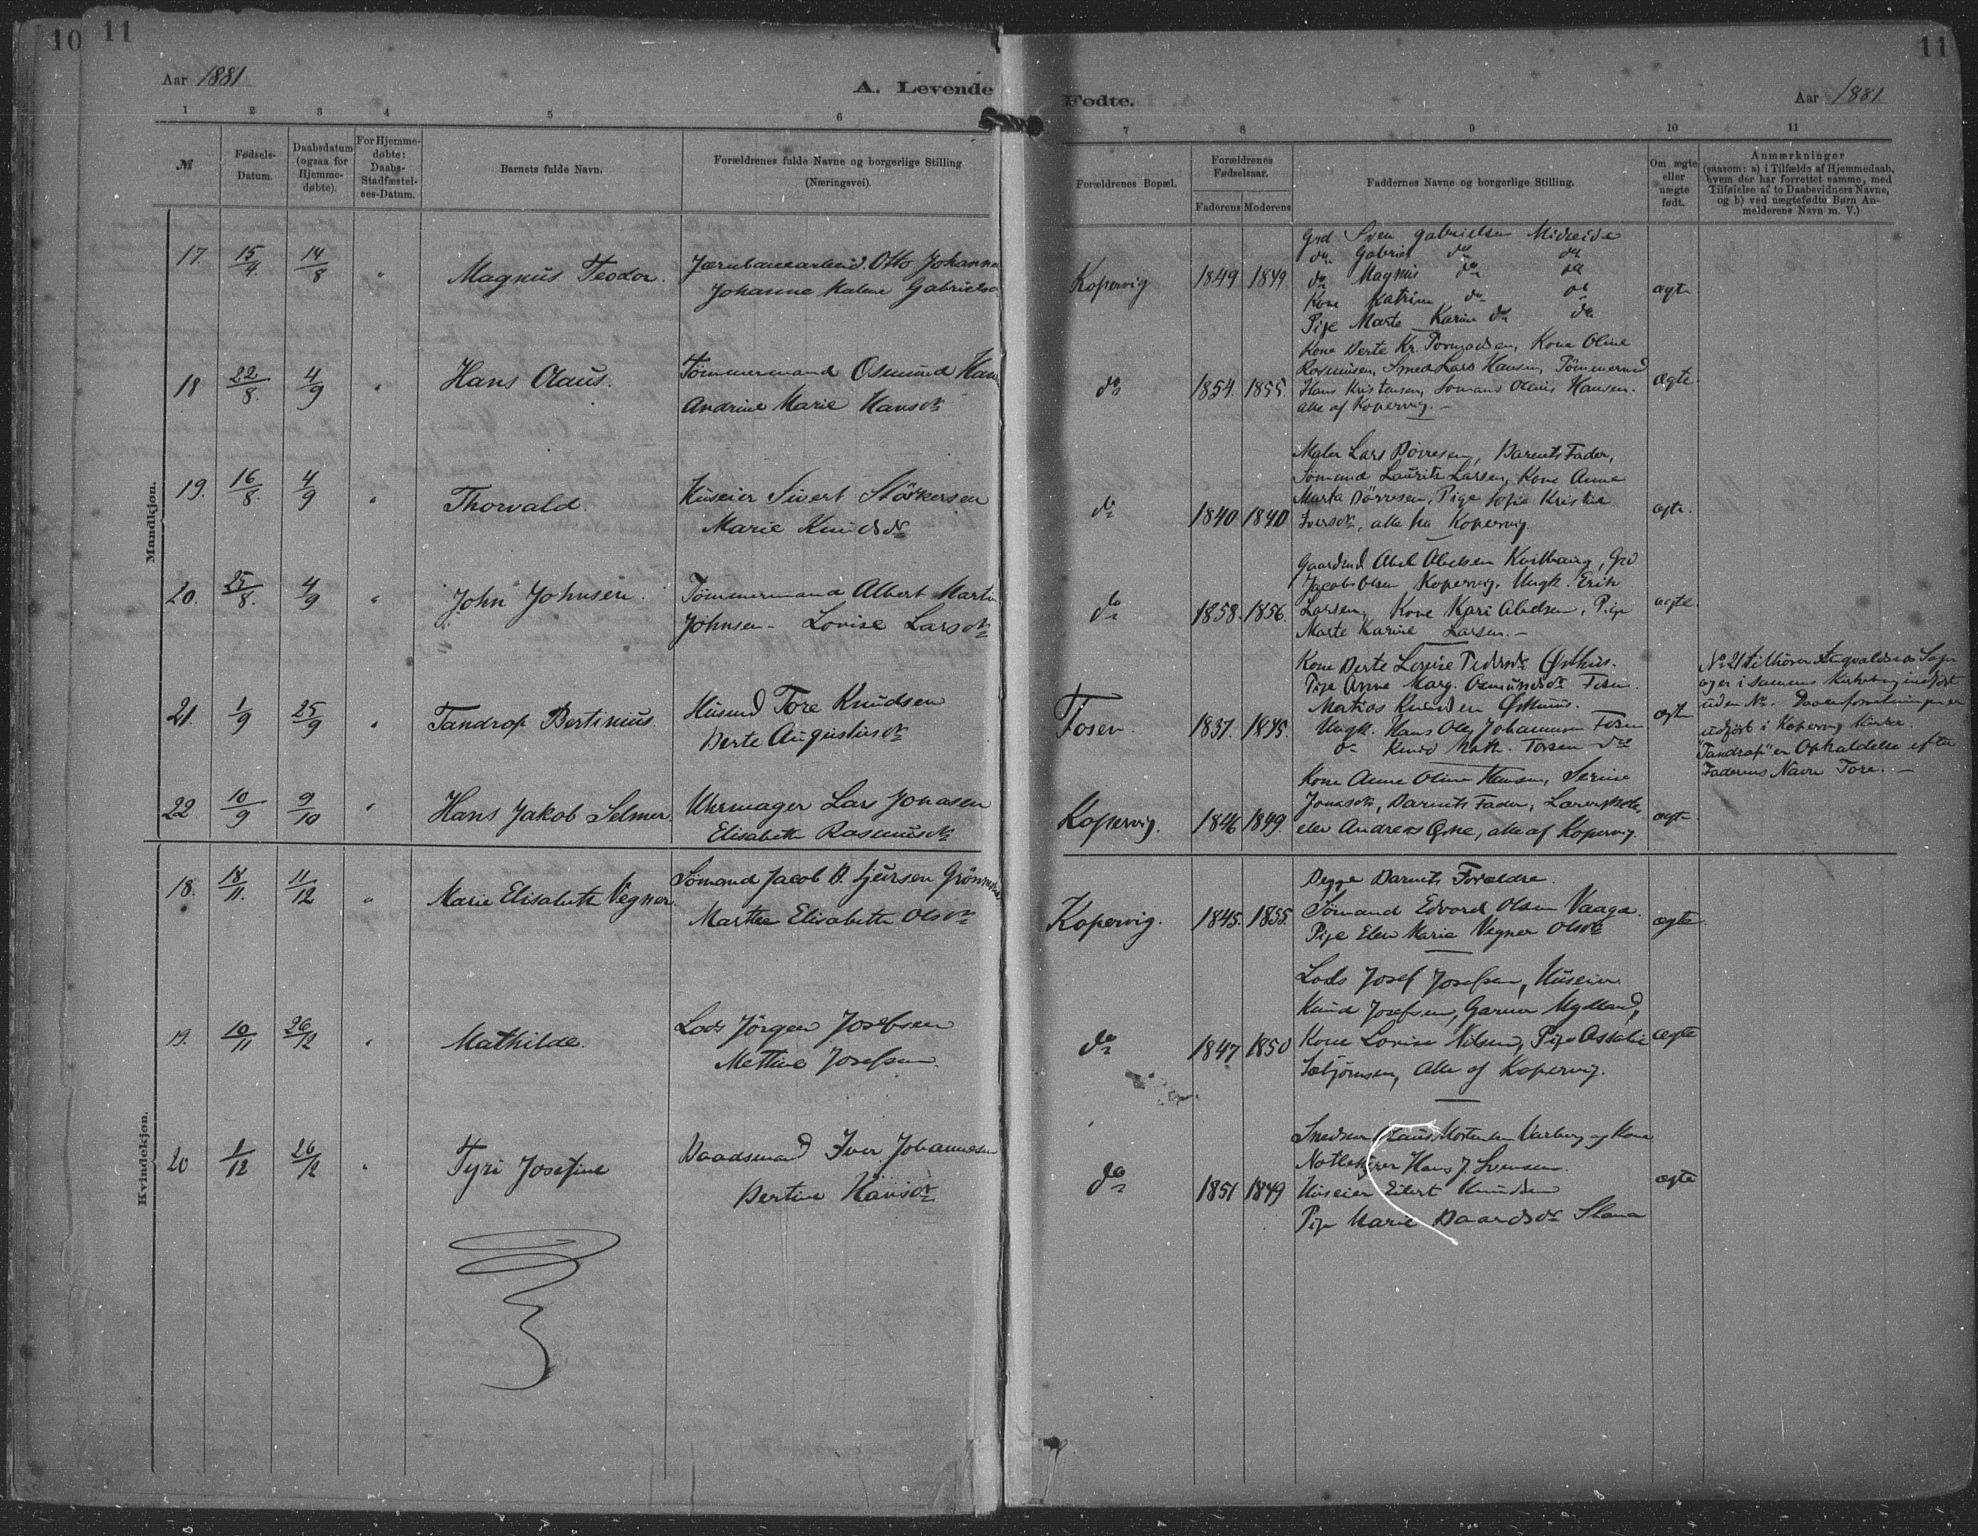 10 11
11
Aar 1881
A. Levende
Fødte.
Aar 1881
1 2 3 4 5 6
7 8 9 10 11
№
Fødsels-
Datum.
Daabsdatum
(ogsaa for
Hjemme-
døbte).
For Hjemme-
døbte:
Daabs-
Stadfæstel-
ses-Datum.
Barnets fulde Navn.
Forældrenes fulde Navne og borgerlige Stilling
(Næringsvei).
Forældrenes Bopæl.
Forældrenes
Fødselsaar.
Faderens Moderens
Faddernes Navne og borgerlige Stilling.
Om ægte
eller
uægte
født.
Anmærkninger
(saasom: a) i Tilfælde af Hjemmedaab,
hvem der har forrettet samme, med
Tilføielse af to Daabsvidners Navne,
og b) ved uægtefødte Børn An-
melderens Navn m. V.)
Mandkjøn.
17. 15/4. 14/8 " Magnus Teodor. Jernbanearbeid. Otto Johann
Johanne Malene Gabriels
Kopervig 1849 1849.
Grd Sven Gabrielsen Midreide
do Gabriel do do
do Magnus do do
Kone Katrine do do
Pige Marte Karine do do
ægte
18 22/8. 4/9 " Hans Olaus. Tømmermand Osmund Han
Andrine Marie Hansdtr
do 1854. 1855.
Kone Berte Kr. Tormodsen, Kone Oline
Rasmusen, Smed Lars Hansen, Tømmermd
Hans Kristensen, Sømand Olaus Hansen.
alle af Kopervig.—
ægte
19. 16/8. 4/9 " Thorvald. Huseier Sivert Størkersen
Marie Knudsdr
do 1840 1840
Maler Lars Dørresen, Barnets Fader,
Sømand Laurits Larsen, Kone Anne
Marta Dørresen, Pige Sofie Kristine
Iversdtr, alle fra Kopervig.
ægte.
20. 25/8. 4/9 " John Johnsen. Tømmermand Albert Martin
Johnsen - Lovise Larsdtr
do 1858. 1856.
Gaardmd Abel Abelsen Grd
Jacob Olsen Kopervig, Ungk. Erik
Larsen, Kone Kari Abelsen, Pige
Marte Karine Larsen.—
ægte.
21. 1/9 25/9 " Tandrop Bertinius. Husmd Tore Knudsen
Berte Augustinsdtr
Fosen. 1837. 1845.
Kone Berte Lovise Pedersdtr Østhus.
Pige Anne Marg. Osmundsdtr Fosen.
Matias Knudsen Østhus.
Ungk. Hans Olaf Johannesen Fosen
do Knud Torsen do
ægte
No 21 tilhører Augvaldsnes Sogn
og er i sammes Kirkebog indført
uden No. Daabsforretningen er
udført i Kopervig Kirke.
"Tandrop" er Ophaldelse efter
Faderens Navn Tore.—
22. 10/9 9/10 " Hans Jakob Selmer. Uhrmager Lars Jonasen
Elisabeth Rasmusdtr
Kopervig. 1846 1849.
Kone Anne Oline Hansen, Serine
Jonasdtr, Barnets Fader, Lærerskole-
elev Andreas Østhe, alle af Kopervig.
ægte
Kvindekjøn.
18. 18/11. 11/12 " Marie Elisabeth Vegner. Sømand Jacob B. Sjursen Grønn
Marthe Elisabeth Olsdtr
Kopervig. 1845. 1855.
Begge Barnets Forældre.
Sømand Edvard Olsen Vaage.
Pige Elen Marie Vegner Olsdtr
ægte
19. 10/11 26/12 " Mathilde. Lods Jørgen Josefsen
Mettine Josefsen.
do 1847 1850
Lods Josef Josefsen, Huseier
Knud Josefsen, Garver Mydland,
Kone Lovise Nilsen, Pige Assalie
Sæbjørnsen, Alle af Kopervig.
ægte
20 1/12 26/12 " Tyri Josefine Baadsmand Iver Johannessen
Bertine Hansdtr
do 1851 1849
Snedker Claus Mortensen Varberg og Kone
Notbskjer Hans J. Svensen
Huseier Eilert Knudsen
Pige Marie Baardsdr Stana
ægte